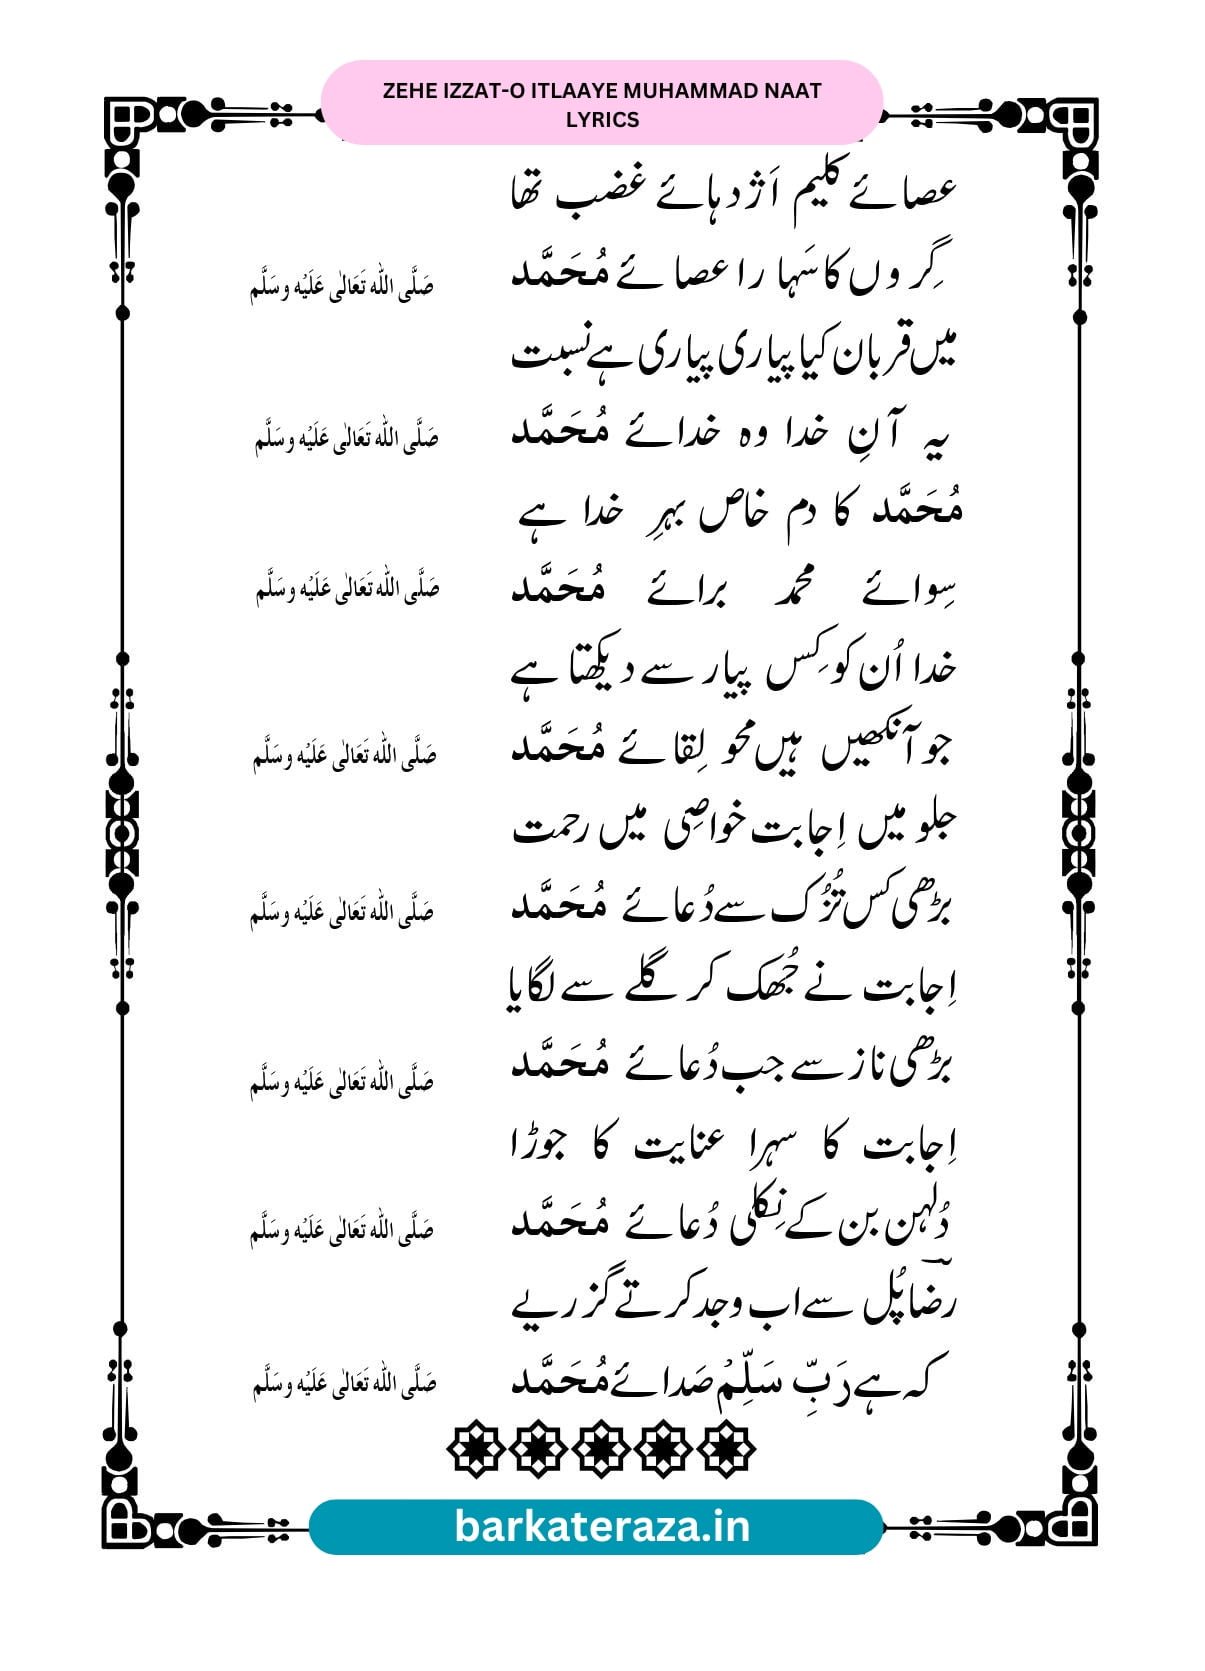 ZEHE IZZAT-O ITLAAYE MUHAMMAD NAAT
LYRICS
عصائے کلیم اَژدہائے غضب تھا
گِروں کا سَہارا عصائے مُحَمَّد صَلَّی اللہ تَعَالٰی عَلَیْہ وسَلَّم
میں قربان کیا پیاری پیاری ہے نسبت
یہ آنِ خدا وہ خدائے مُحَمَّد صَلَّی اللہ تَعَالٰی عَلَیْہ وسَلَّم
مُحَمَّد کا دم خاص بہرِ خدا ہے
سِوائے محمد برائے مُحَمَّد صَلَّی اللہ تَعَالٰی عَلَیْہ وسَلَّم
خدا اُن کو کِس پیار سے دیکھتا ہے
جو آنکھیں ہیں محو لِقائے مُحَمَّد صَلَّی اللہ تَعَالٰی عَلَیْہ وسَلَّم
جلو میں اِجابت خواصِی میں رحمت
بڑھی کس تُزُک سے دُعائے مُحَمَّد صَلَّی اللہ تَعَالٰی عَلَیْہ وسَلَّم
اِجابت نے جُھک کر گلے سے لگایا
بڑھی ناز سے جب دُعائے مُحَمَّد صَلَّی اللہ تَعَالٰی عَلَیْہ وسَلَّم
اِجابت کا سہرا عنایت کا جوڑا
دُلہن بن کے نِکلی دُعائے مُحَمَّد صَلَّی اللہ تَعَالٰی عَلَیْہ وسَلَّم
رضؔا پُل سے اب وجد کرتے گزریے
کہ ہے رَبِّ سَلِّمْ صَدائے مُحَمَّد صَلَّی اللہ تَعَالٰی عَلَیْہ وسَلَّم
barkateraza.in